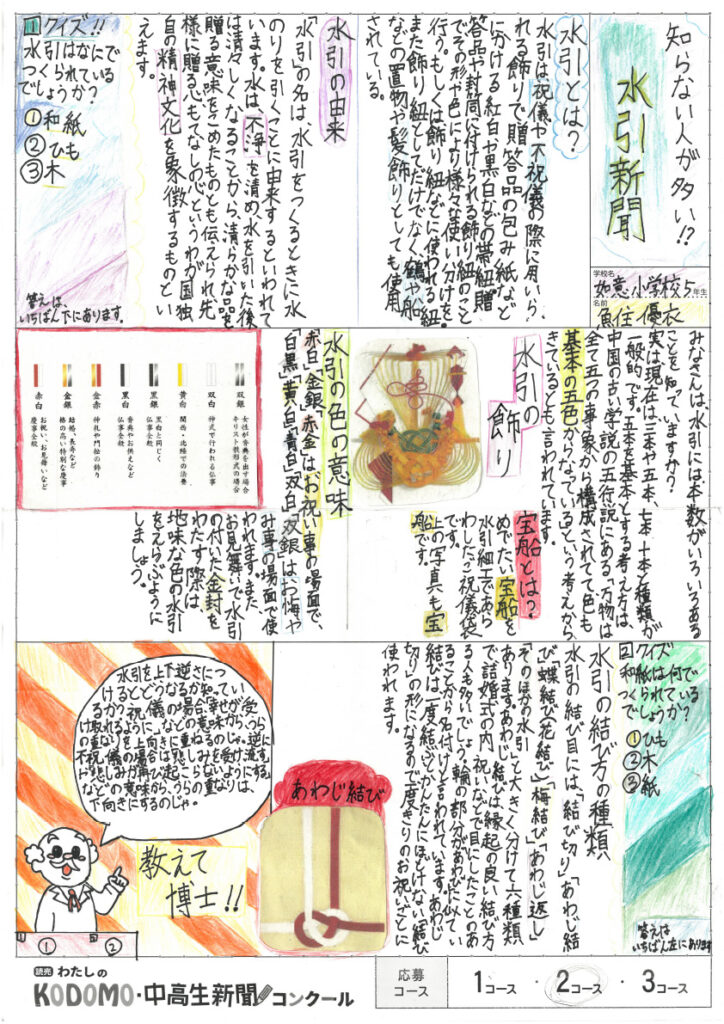 知らない人が多い!?
水引新聞
学校名
如意小学校5年生
名前
魚住 優衣
水引とは?
水引は、祝儀や不祝儀の際に用いら
れる飾りで、贈答品の包み紙など
に分ける紅白や黒白などの帯紐、贈
答品や封筒に付けられる飾り紐のこと
でその形や色により様々な使い分けを
行う。もしくは飾り紐などに使われる紐
また飾り紐としてだけでなく鶴や船
などの置物や髪飾りとしても使用
されている。
水引の由来
「水引」の名は、水引をつくるときに水
のりを引くことに由来するといわれて
います。水は、不浄を清め、水を引いた後
は清々しくなることから、清らかな品を
贈る意味をこめたものとも伝えられ、先
様に贈る心もてなしの心というわが国独
自の精神文化を象徴するものとい
えます。
1クイズ!!
水引はなにで
つくられている
でしょうか?
①和紙
②ひも
③木
答えは、
いちばん下にあります。
みなさんは、水引には本数がいろいろある
ことを知っていますか?
実は現在は三本や五本、七本、十本と種類が
一般的です。五本を基本とする考え方は、
中国の古い学説の五行説にある「万物は
全て五つの事象から構成されてて色も
基本の五色からなっているという考えから
きているとも言われています。
水引の
飾り
宝船とは?
めでたい宝船を
水引細工であら
わしたご祝儀袋
です。
上の写真も宝
船です。
水引の色の意味
「赤白」「金銀」「赤金」はお祝い事の場面で、
「白黒」「黄白」「青白」「双白」「双銀」は、お悔や
み事の場面で使
われます。また、
お見舞いで水引
の付いた金封を
わたす際は
地味な色の水引
をえらぶように
しましょう。
双銀 女性が香典を出す場合 キリスト教形式の場合
双白 神式で行われる仏事
黄白 関西・北陸での法要
黒銀 黒白と同じく 仏事全般
黒白 香典やお供えなど 仏事全般
赤金 神社や門松の飾り
金銀 結婚、長寿など 格の高い特別な慶事
赤白 お祝い、お見舞いなど 慶事全般
2クイズ
和紙は何で
つくられている
でしょうか?
①ひも
②木
③紙
答えは
いちばん左にあります
水引の結び方の種類
水引の結び目には、「結び切り」「あわじ結
び」「蝶結び(花結び)」「梅結び」「あわじ返し」
そのほかの水引」と大きく分けて六種類
あります。あわじ結びは縁起の良い結び方
で結婚式の内祝いなどで目にしたことのあ
る人も多いでしょう。輪の部分があわびに似てい
ることから名付けと言われています。あわじ
結びは一度結ぶとかんたんにほどけない「結び
切り」の形になるので一度きりのお祝いごとに
使われます。
あわじ結び
教えて
博士!!
①
②
読売 わたしの
KODOMO・中高生新聞コンクール
応募コース
1コース・2コース・3コース